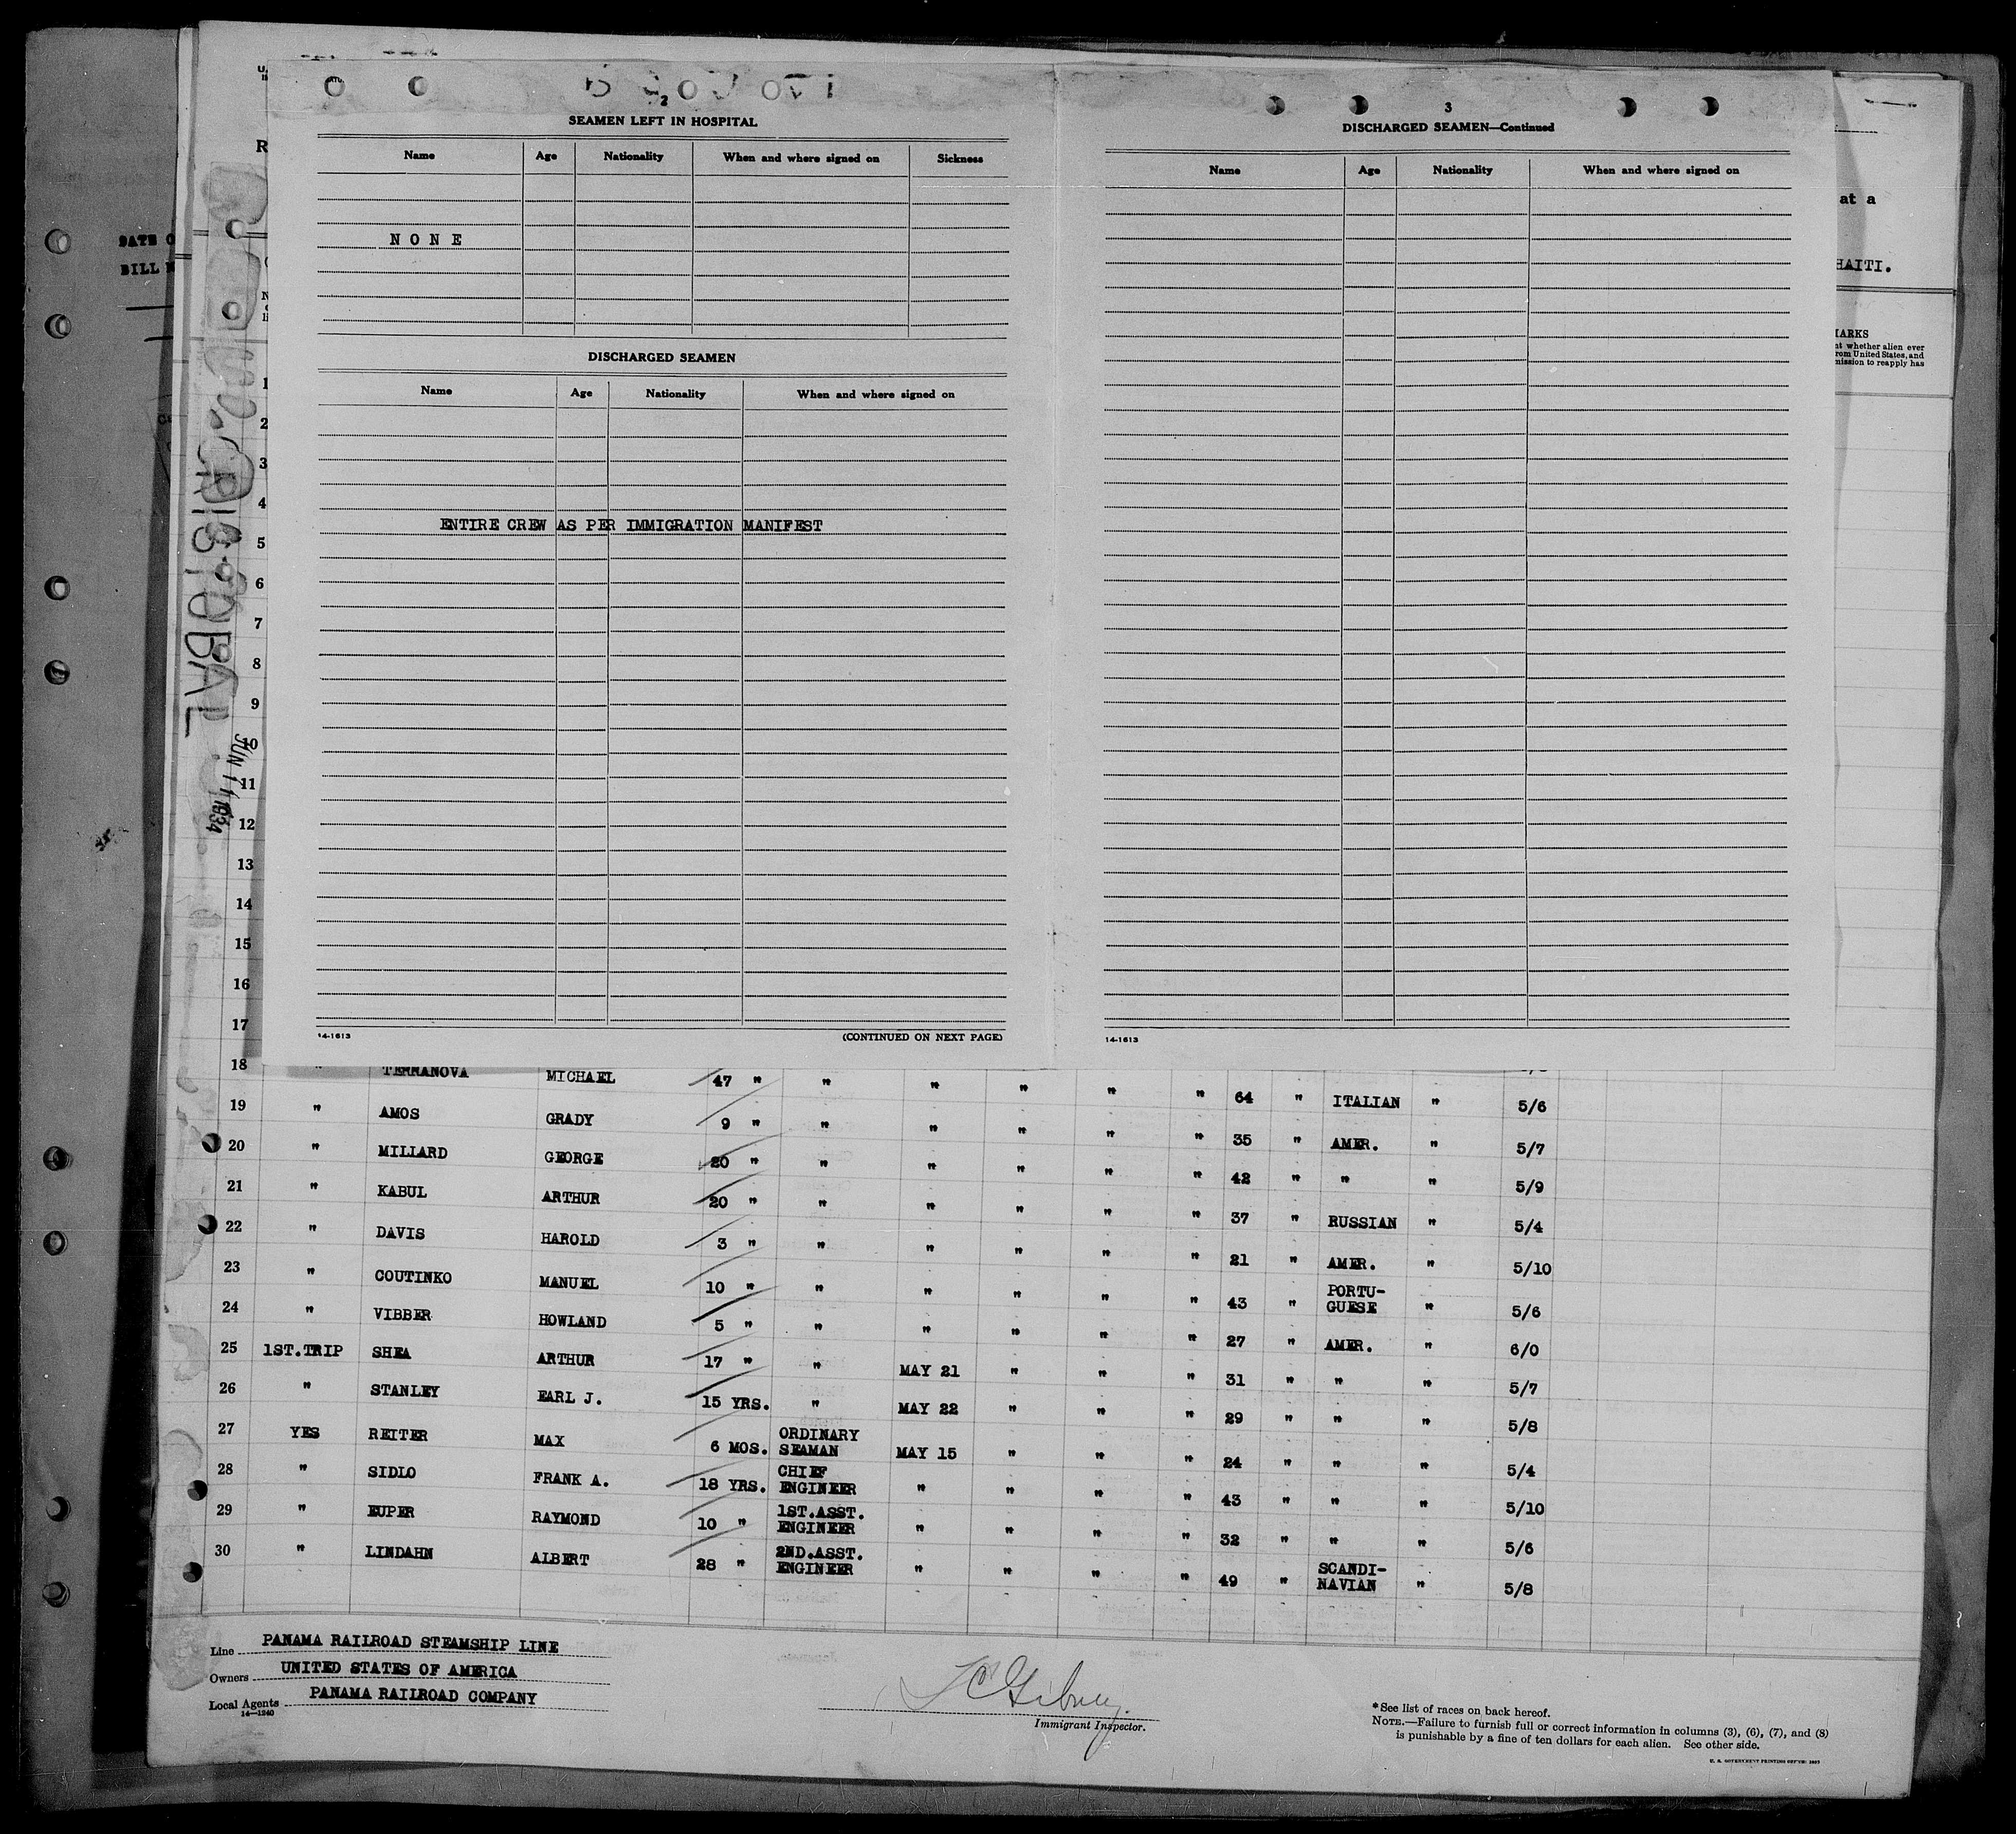 2
SEAMEN LEFT IN HOSPITAL
Name Age Nationality When and where signed on Sickness
NONE
DISCHARGED SEAMEN
Name Age Nationality When and where signed on
ENTIRE CREW AS PER IMMIGRATION MANIFEST
14-1613 (CONTINUED ON NEXT PAGE)
3
DISCHARGED SEAMEN—Continued
Name Age Nationality When and where signed on
14-1613
at a
HAITI.
whether alien ever
rom United States, and
mission to reapply has
DATE O
BILL
CRISTOBAL
1934
1
2
3
4
5
6
7
8
9
10
11
12
13
14
15
16
17
18 " TERRANOVA MICHAEL 47 " " " " " " 64 " ITALIAN " 5/6
19 " AMOS GRADY 9 " " " " " " 35 " AMER. " 5/7
20 " MILLARD GEORGE 20 " " " " " " 42 " " " 5/9
21 " KABUL ARTHUR 20 " " " " " " 37 " RUSSIAN " 5/4
22 " DAVIS HAROLD 3 " " " " " " 21 " AMER. " 5/10
23 " COUTINKO MANUEL 10 " " " " " " 43 " PORTU-
GUESE " 5/6
24 " VIBBER HOWLAND 5 " " " " " " 27 " AMER. " 6/0
25 1ST.TRIP SHEA ARTHUR 17 " " MAY 21 " " " 31 " " " 5/7
26 " STANLEY EARL J. 15 YRS. " MAY 22 " " " 29 " " " 5/8
27 YES REITER MAX 6 MOS. ORDINARY
SEAMAN MAY 15 " " " 24 " " " 5/4
28 " SIDLO FRANK A. 18 YRS. CHIEF
ENGINEER " " " " 43 " " " 5/10
29 " EUPER RAYMOND 10 " 1ST.ASST.
ENGINEER " " " " 32 " " " 5/6
30 " LINDAHN ALBERT 28 " 2ND.ASST.
ENGINEER " " " " 49 " SCANDI-
NAVIAN " 5/8
Line PANAMA RAILROAD STEAMSHIP LINE
Owners UNITED STATES OF AMERICA
Local Agents PANAMA RAILROAD COMPANY
14—1240
Immigrant Inspector.
*See list of races on back hereof.
NOTE.—Failure to furnish full or correct information in columns (3), (6), (7), and (8)
is punishable by a fine of ten dollars for each alien. See other side.